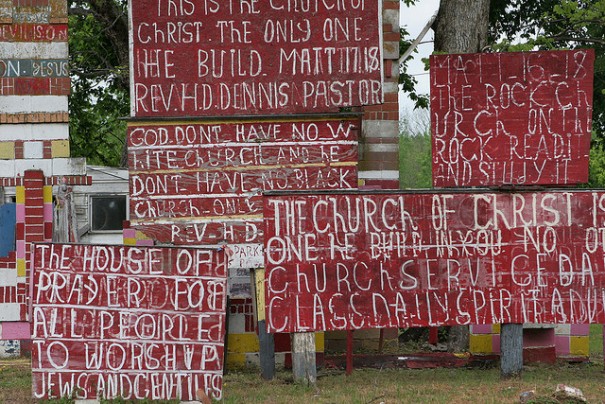 DEVILISON
ON JESUS
THIS IS THE CHURCH OF
CHRIST. THE ONLY ONE.
HE BUILD. MATT.17.18
REV. H.D. DENNIS. PASTOR
GOD.DONT HAVE NO.W
HITE CHURCH AND HE
DONT HAVE NO.BLACK
CHURCH ONLE
REV-H.D.
PARK
THE ROCK.CH
URCH ON TH
ROCK READ.
THE CHURCH OF CHRIST IS
ONE. HE BUILD IN YOU NO. O
CHURCH SERVICE DA
CLASS.DAILY SPIRIT ADV
THE HOUSE OF
PRAYER FOR
ALL PEOPLE
TO WORSHIP
JEWS AND GENTILES